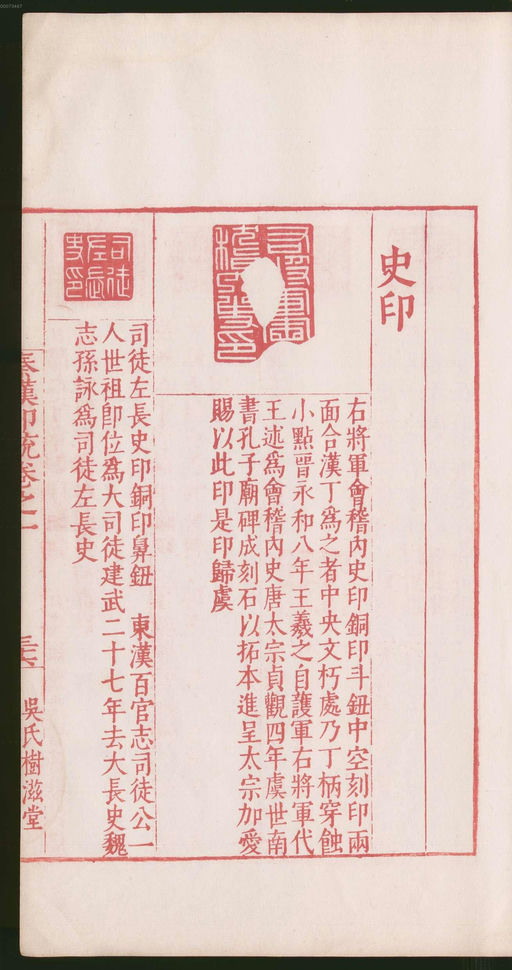 史印
右將軍會稽內史印銅印斗鈕中空刻印兩
面合漢丁爲之者中央文朽處乃丁柄穿蝕
小點晉永和八年王羲之自護軍右將軍代
王述爲會稽內史唐太宗貞觀四年虞世南
書孔子廟碑成刻石以拓本進呈太宗加愛
賜以此印是印歸虞
司徒左長史印
司徒左長史印銅印鼻鈕 東漢百官志司徒公一
人世祖卽位爲大司徒建武二十七年去大長史魏
志孫詠爲司徒左長史
秦漢印統卷之一
吳氏樹滋堂
00073447